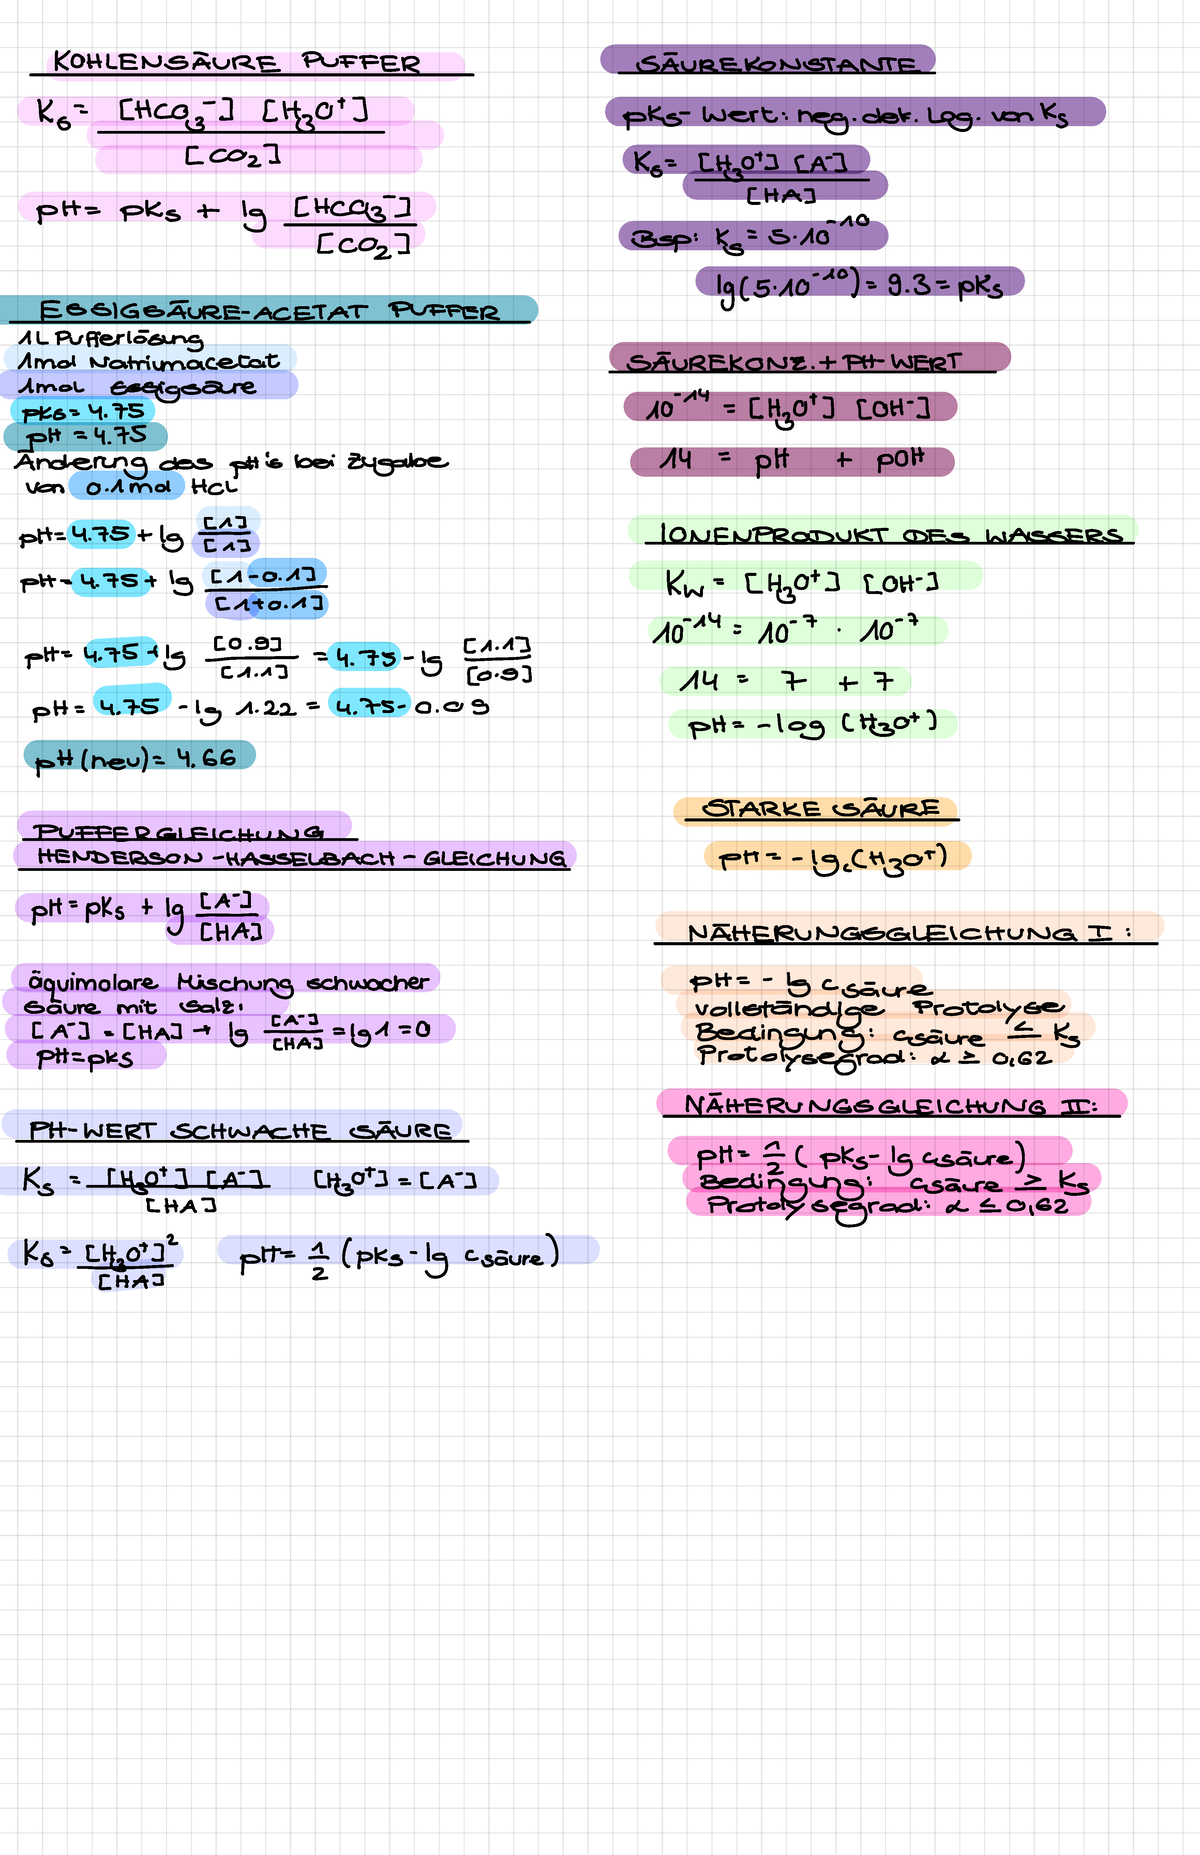 KOHLENSÄURE PUFFER
Ks = [HCO3⁻] [H3O⁺]
[CO2]
pH = pKs + lg [HCO3⁻]
[CO2]
ESSIGSÄURE-ACETAT PUFFER
1L Pufferlösung
1mol Natriumacetat
1mol Essigsäure
pKs = 4.75
pH = 4.75
Änderung des pH's bei Zugabe
von 0.1mol HCL
pH = 4.75 + lg [1]
[1]
pH = 4.75 + lg [1-0.1]
[1+0.1]
pH = 4.75 + lg [0.9] = 4.75 - lg [1.1]
[1.1] [0.9]
pH = 4.75 - lg 1.22 = 4.75 - 0.09
pH (neu) = 4.66
PUFFERGLEICHUNG
HENDERSON-HASSELBACH-GLEICHUNG
pH = pKs + lg [A⁻]
[HA]
äquimolare Mischung schwacher
Säure mit Salz:
[A⁻] = [HA] → lg [A⁻] = lg 1 = 0
[HA]
pH = pks
PH-WERT SCHWACHE SÄURE
Ks = [H3O⁺] [A⁻] [H3O⁺] = [A⁻]
[HA]
Ks = [H3O⁺]² pH = 1/2 (pKs - lg csäure)
[HA]
SÄUREKONSTANTE
pKs-Wert: neg. dek. Log. von Ks
Ks = [H3O⁺] [A⁻]
[HA]
Bsp: Ks = 5·10⁻¹⁰
lg(5·10⁻¹⁰) = 9.3 = pKs
SÄUREKONZ. + PH-WERT
10⁻¹⁴ = [H3O⁺] [OH⁻]
14 = pH + pOH
IONENPRODUKT DES WASSERS
KW = [H3O⁺] [OH⁻]
10⁻¹⁴ = 10⁻⁷ · 10⁻⁷
14 = 7 + 7
pH = -log (H3O⁺)
STARKE SÄURE
pH = -lg.(H3O⁺)
NÄHERUNGSGLEICHUNG I :
pH = - lg csäure
vollständige Protolyse
Bedingung: csäure ≤ Ks
Protolysegrad: α ≥ 0,62
NÄHERUNGSGLEICHUNG II:
pH = 1/2 (pKs - lg csäure)
Bedingung: csäure ≥ Ks
Protolysegrad: α ≤ 0,62